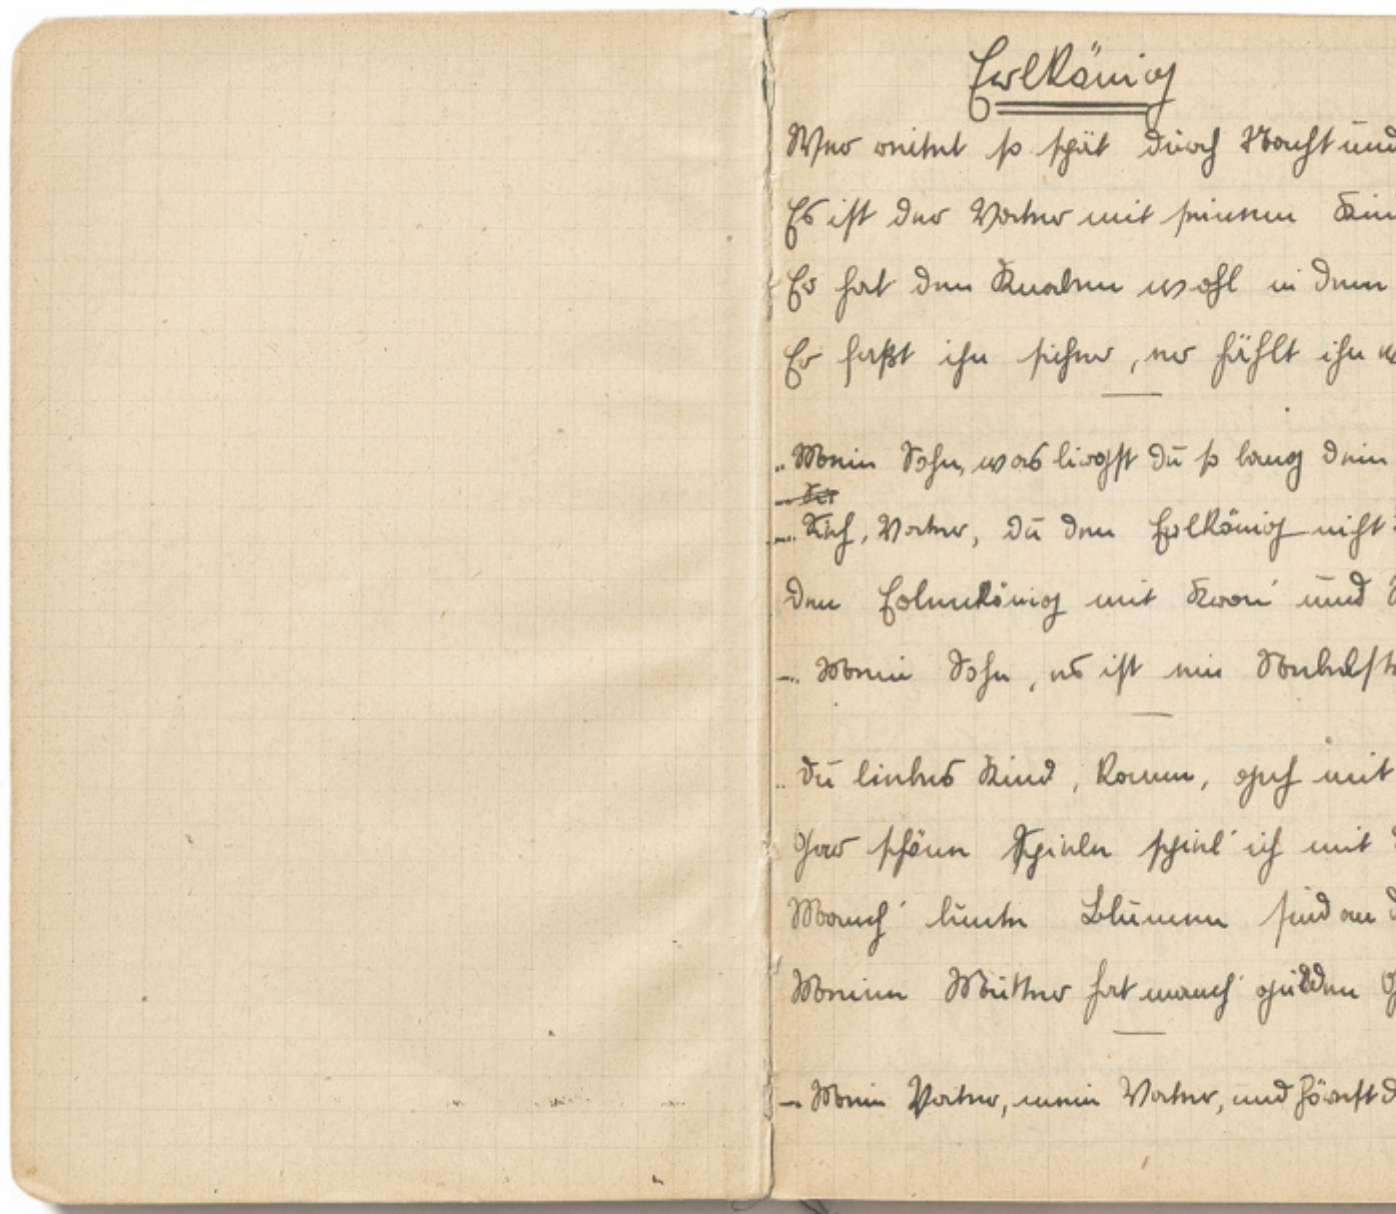 Erlkönig
Wer reitet so spät durch Nacht und
Es ist der Vater mit seinem Kin
Er hat den Knaben wohl in dem
Er faßt ihn sicher, er hählt ihn w
„Mein Sohn, was birgst du so bang dein
– Sie
– „Sieh, Vater, du den Erlkönig nicht?
den Erlenkönig mit Kron' und
– „Mein Sohn, es ist ein Nebelst
„du liebes Kind, komm, geh mit
Gar schöne Spiele spiel' ich mit
Manch' bunte Blumen sind an d
Meine Mutter hat manch' gülden G
– Mein Vater, mein Vater, und hörest d